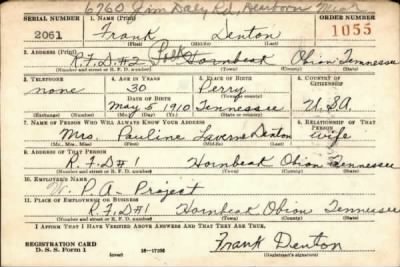 6760 Jim Daly Rd, Dearborn Mich
SERIAL NUMBER 1. NAME (Print) ORDER NUMBER
2061 Frank Denton 1055
(First) (Middle) (Last)
2. ADDRESS (Print)
R.F.D. #2 Polk Hornbeak Obion Tennessee
(Number and street or R. F. D. number) (Town) (County) (State)
3. TELEPHONE 4. AGE IN YEARS 5. PLACE OF BIRTH 6. COUNTRY OF CITIZENSHIP
none 30 Perry
DATE OF BIRTH (Town or county)
May 5 1910 Tennessee U.S.A.
(Exchange) (Number) (Mo.) (Day) (Yr.) (State or country)
7. NAME OF PERSON WHO WILL ALWAYS KNOW YOUR ADDRESS 8. RELATIONSHIP OF THAT PERSON
Mrs. Pauline Laverne Denton wife
(Mr., Mrs., Miss) (First) (Middle) (Last)
9. ADDRESS OF THAT PERSON
R.F.D #1 Hornbeak Obion Tennessee
(Number and street or R. F. D. number) (Town) (County) (State)
10. EMPLOYER'S NAME
W.P.A- Project
11. PLACE OF EMPLOYMENT OR BUSINESS
R.F.D #1 Hornbeak Obion Tennessee
(Number and street or R. F. D. number) (Town) (County) (State)
I AFFIRM THAT I HAVE VERIFIED ABOVE ANSWERS AND THAT THEY ARE TRUE.
REGISTRATION CARD
D. S. S. Form 1 (over) Frank Denton
(Registrant's signature)